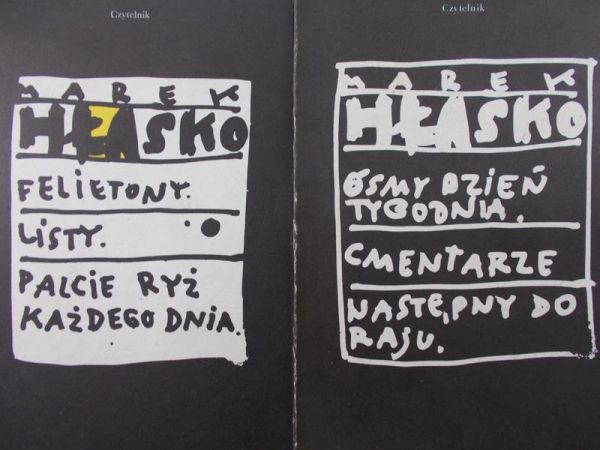 Czytelnik
MAREK
HŁASKO
FELIETONY.
LISTY.
PALCIE RYŻ
KAŻDEGO DNIA.
Czytelnik
MAREK
HŁASKO
ÓSMY DZIEŃ
TYGODNIA.
CMENTARZE
NASTĘPNY DO
RAJU.